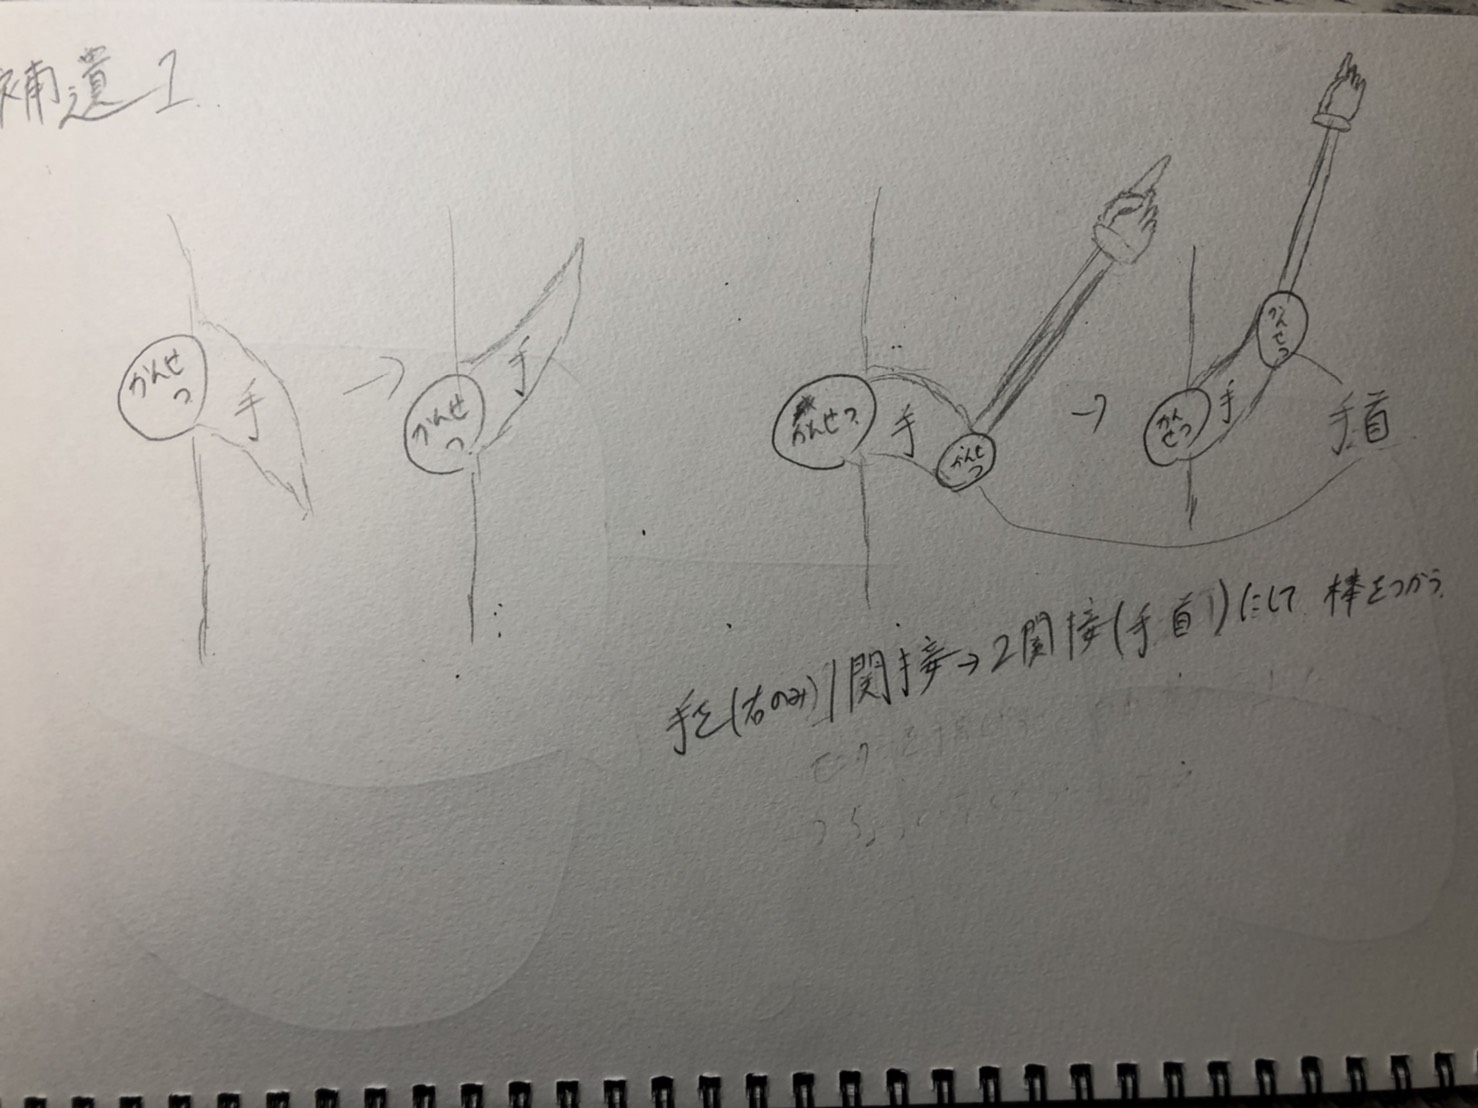 補遺1
かんせ
つ
手
かんせ
つ
手
かんせつ
手
かんせ
つ
かん
せつ
手
かんせつ
手首
手を(右のみ)1関接→2関接(手首)にして 棒をつかう